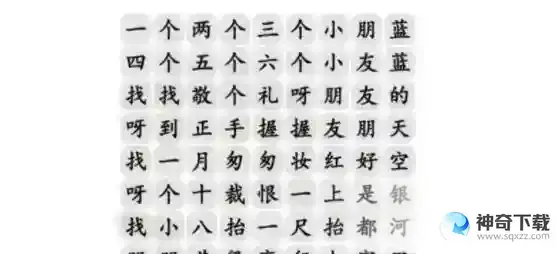 一个两个三个小朋蓝
四个五个六个小友蓝
找找敬个礼呀朋友的
呀到正手握握友朋天
找一月匆匆妆红好空
呀个十裁恨一上是银
找小八抬一尺抬都河
神奇下载
www.sqxzz.com